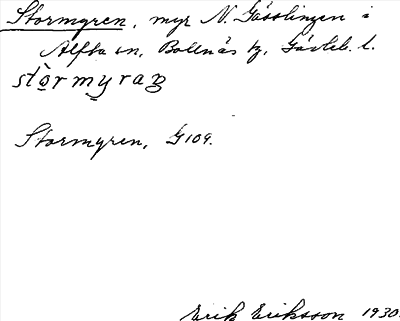 Stormyren, myr N. Gässlingen i
Alfta sn, Bollnäs tg, Gävleb. l.
stòrmyraṇ
Stormyren, G109.
Erik Eriksson 1930.